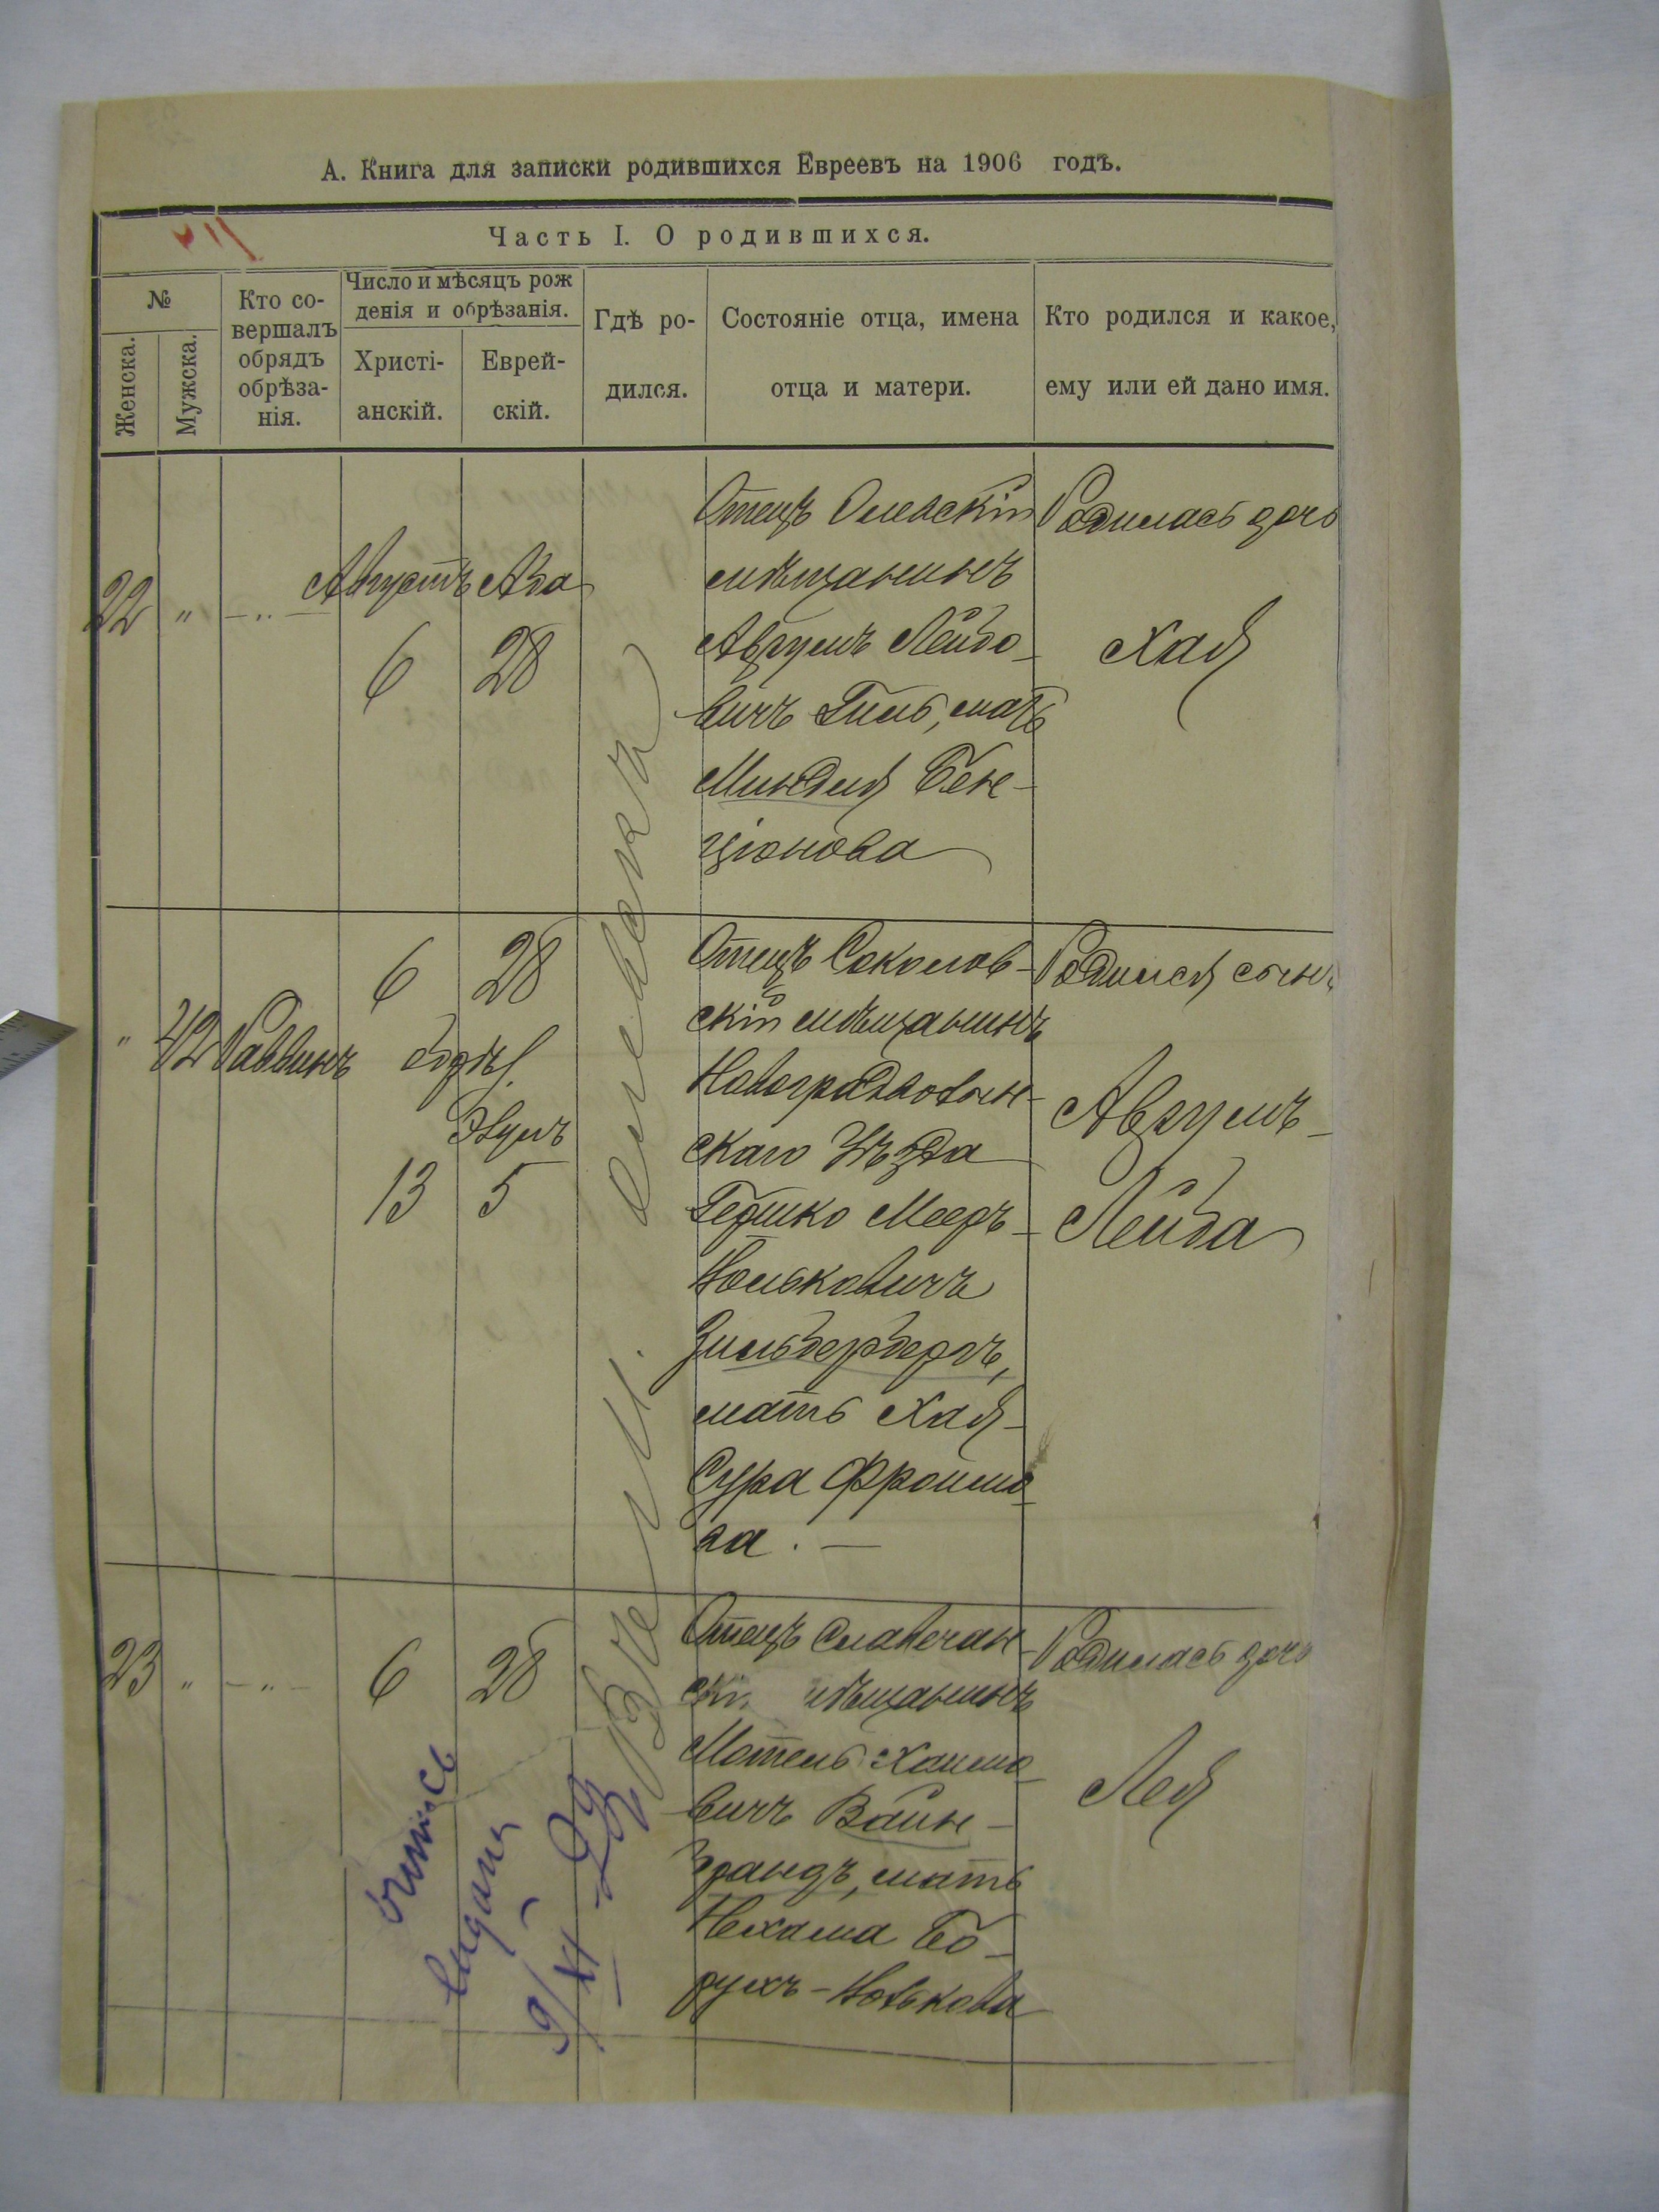 А. Книга для записки родившихся Евреевъ на 1906 годъ.
Часть I. О родившихся.
№
Женска.
Мужска.
Кто со-
вершалъ
обрядъ
обрѣза-
нія.
Число и мѣсяцъ рож
денія и обрѣзанія.
Христі-
анскій.
Еврей-
скій.
Гдѣ ро-
дился.
Состояніе отца, имена
отца и матери.
Кто родился и какое,
ему или ей дано имя.
22 " - " -
Августъ Ава
6 28
Отецъ Олевскій
мѣщанинъ
Аврумъ Лейбо-
вичъ Гиль, мать
Миндля Бен-
ціонова
Родилась дочь
Хая
" 42 Раввинъ
6 28
обрѣз.
Элулъ
13 5
Отецъ Соколов-
скій мѣщанинъ
Новоградволын-
скаго Уѣзда
Гершко Мееръ-
Юльковичъ
Зильбербергъ,
мать Хая-
Сура Фроимо-
ва. —
Родился сынъ
Аврумъ-
Лейба
23 " - " -
6 28
Отецъ Славечан-
скі мѣщанинъ
Мотель Хаимо-
вичъ Вайн-
грандъ, мать
Нехама Бо-
рухъ-Новькова
Родилась дочь
Лея
выдана
9/XI